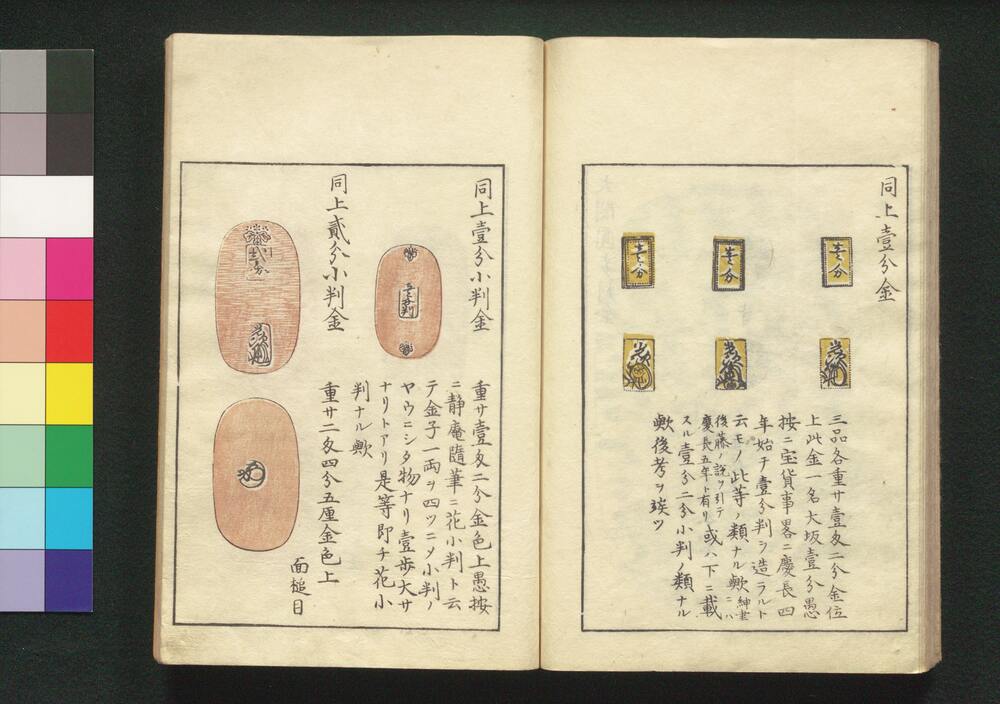 同上壹分金
壹分
壹分
壹分
三品各重サ壹匁二分金位
上此金一名大坂壹分愚
按ニ宝貨事畧ニ慶長四
年始テ壹分判ヲ造ラルト
云モノ此等ノ類ナル歟紳書ニハ
後藤ノ説ヲ引テ
慶長五年ト有リ或ハ下ニ載
スル壹分二分小判ノ類ナル
歟後考ヲ竢ツ
同上壹分小判金
重サ壹匁二分金色上愚按
ニ静庵随筆ニ花小判ト云
テ金子一両ヲ四ツニシ小判ノ
ヤウニシタ物ナリ壹歩大サ
ナリトアリ是等即チ花小
判ナル歟
同上貳分小判金
重サ二匁四分五厘金色上
面槌目